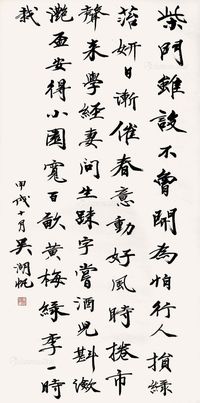 柴門雖設不曾開為怕行人損綠
苔妍日漸催春意動好風時捲市
聲來學經妻問生踈字嘗酒兒斟瀲
灔盃安得小園寬百畝黃梅綠李一時
栽
甲戌十月吳湖帆